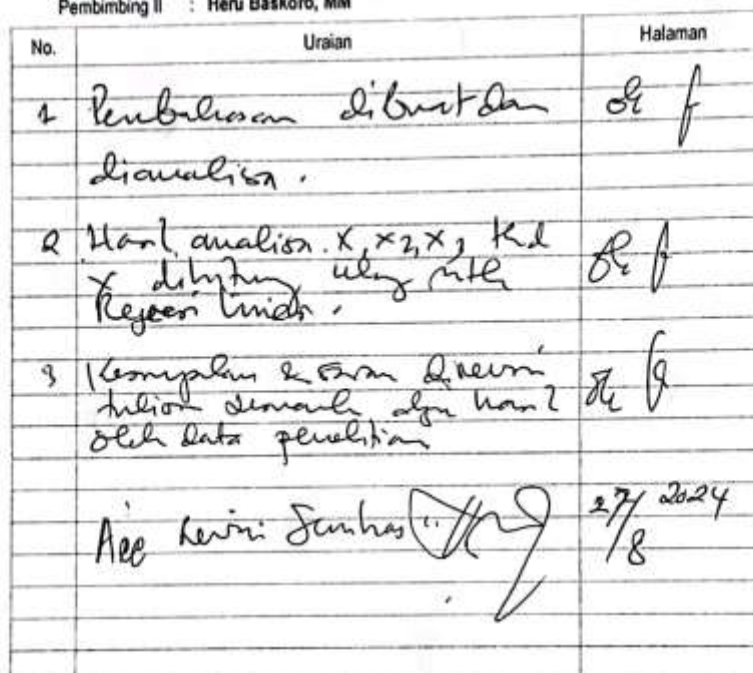 Pembimbing II : Heru Baskoro, MM
No. Uraian Halaman
1 Pembahasan dibuat dan ok
dianalisa.
2 Hasil analisa X, X2, X3 thd ok
Y dihitung ulang
Regresi linier.
3 Kesimpulan & saran direvisi ok
sesuai dgn hasil
oleh data penelitian
Acc Revisi 27/8 2024